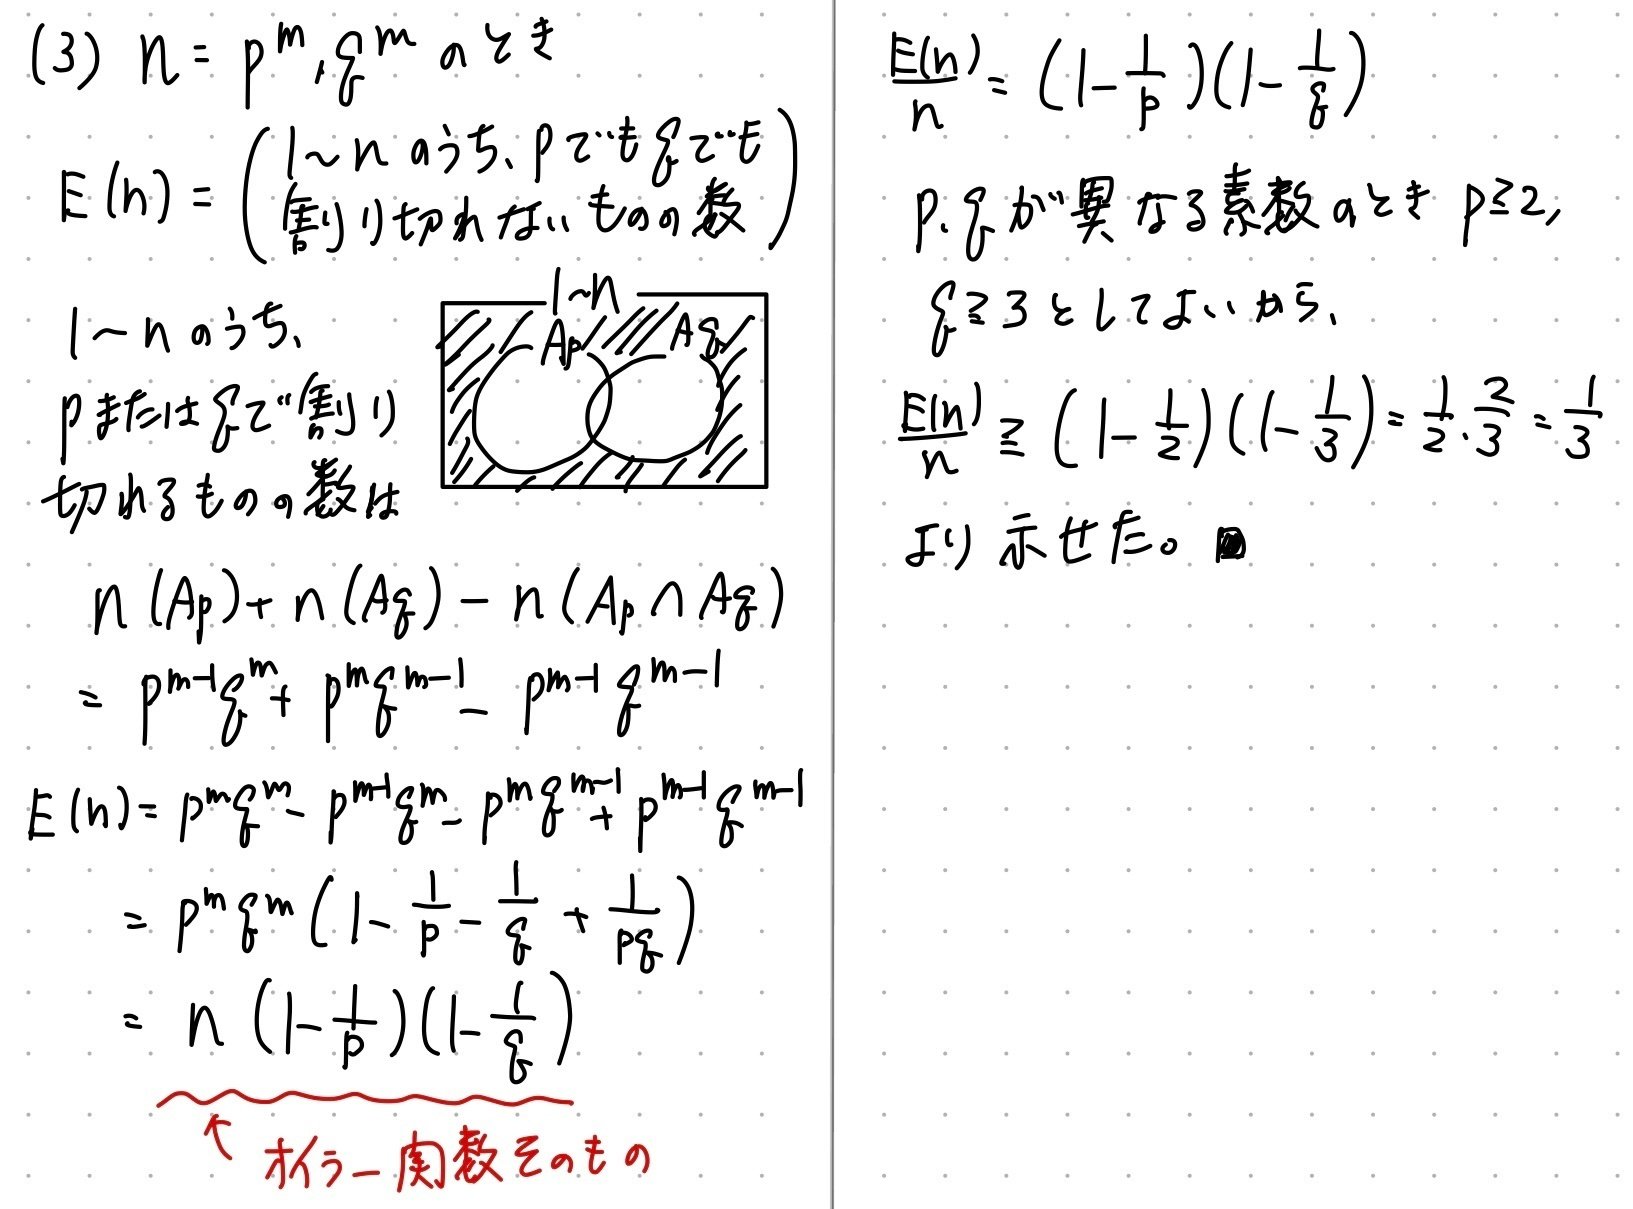 (3) n = p^m, q^m のとき
E(n) = (1~nのうち、pでもqでも
割り切れないものの数)
1~nのうち、
pまたはqで割り
切れるものの数は
1~n
Ap Aq
n(Ap) + n(Aq) - n(Ap ∩ Aq)
= p^{m-1}q^m + p^m q^{m-1} - p^{m-1} q^{m-1}
E(n) = p^m q^m - p^{m-1}q^m - p^m q^{m-1} + p^{m-1} q^{m-1}
= p^m q^m (1 - 1/p - 1/q + 1/pq)
= n (1 - 1/p)(1 - 1/q)
↑ オイラー関数そのもの
E(n)/n = (1 - 1/p)(1 - 1/q)
p.qが異なる素数のとき p≧2,
q≧3としてよいから、
E(n)/n ≧ (1 - 1/2)(1 - 1/3) = 1/2・2/3 = 1/3
より示せた。